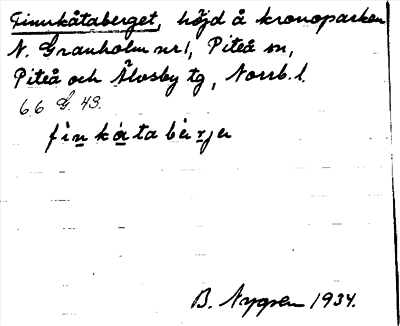 Finnkåtaberget, höjd å kronoparken
N. Granholm nr 1, Piteå sn,
Piteå och Älvsby tg, Norrb. l.
66 G. 43.
B. Nygren 1934.